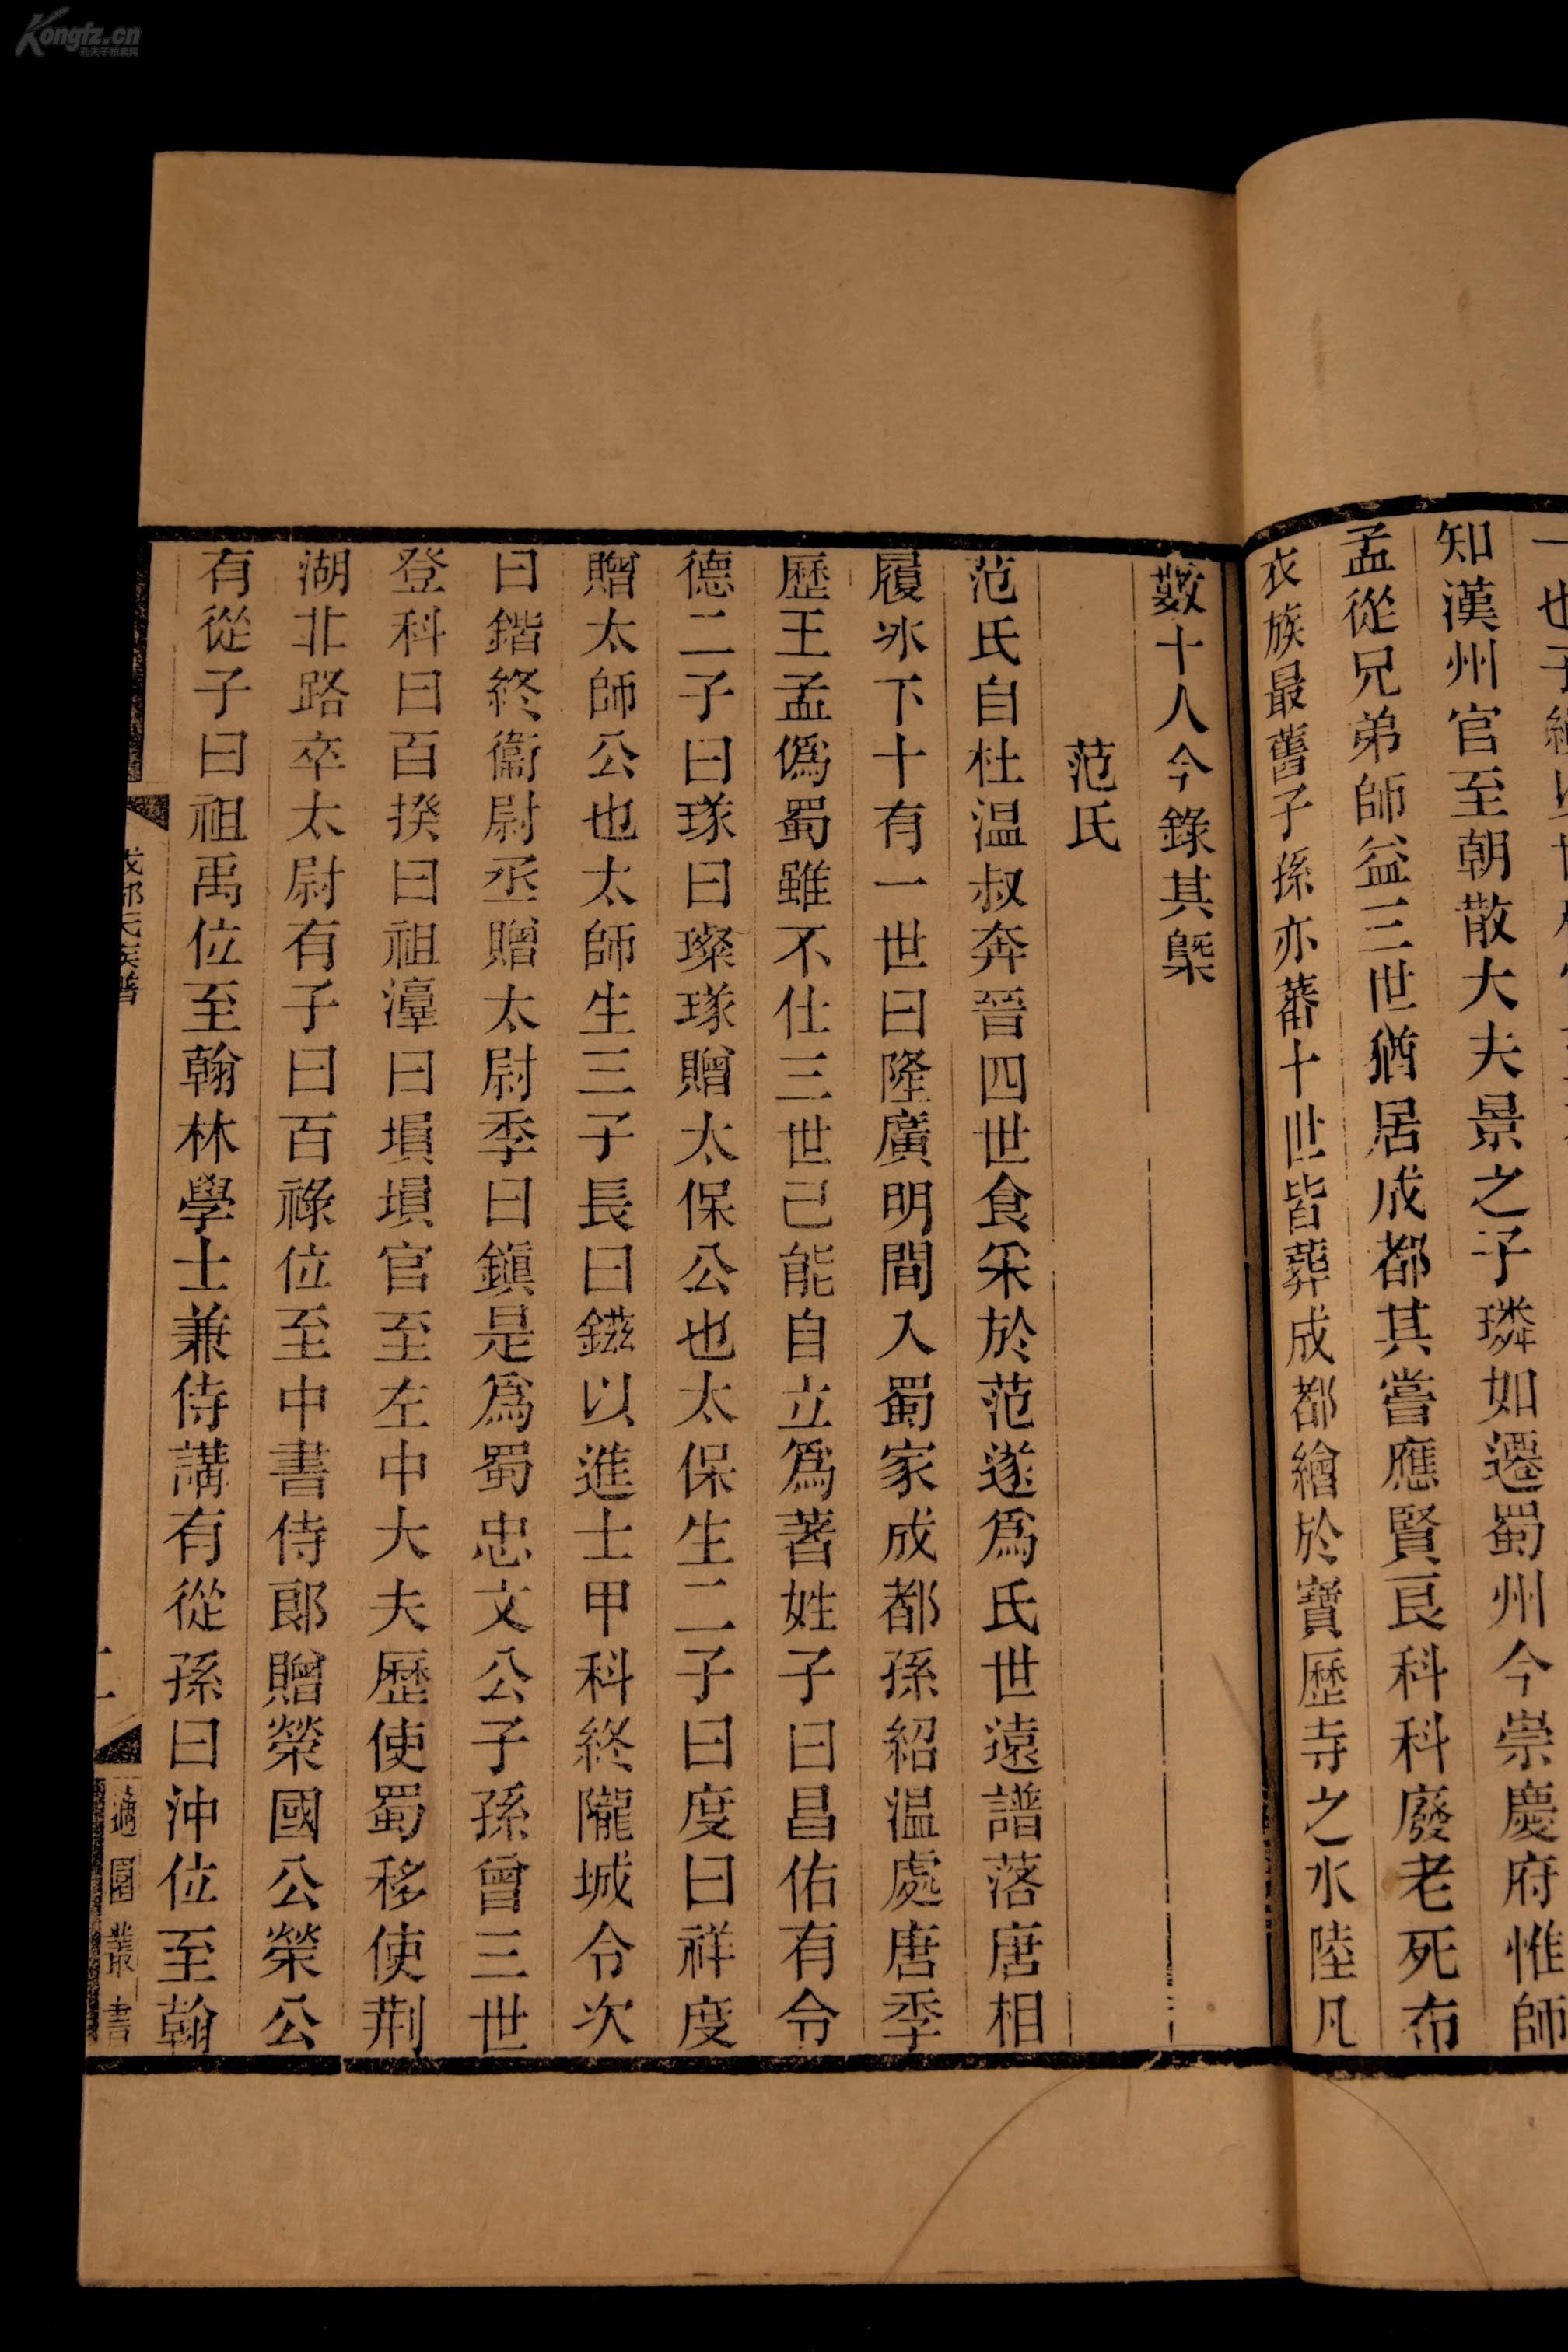 知漢州官至朝散大夫景之子璘如遷蜀州今崇慶府惟師
孟從兄弟師益三世猶居成都其嘗應賢良科科廢老死布
衣族最舊子孫亦蕃十世皆葬成都繪於寶歷寺之水陸凡
數十人今錄其槩
范氏
范氏自杜温叔奔晉四世食采於范遂爲氏世遠譜落唐相
履氷下十有一世曰隆廣明間入蜀家成都孫紹温處唐季
歷王孟僞蜀雖不仕三世已能自立爲著姓子曰昌佑有令
德二子曰璲曰璨璲贈太保公也太保生二子曰度曰祥度
贈太師公也太師生三子長曰鎡以進士甲科終隴城令次
曰鍇終衞尉丞贈太尉季曰鎭是爲蜀忠文公子孫曾三世
登科曰百揆曰祖澕曰塤塤官至左中大夫歷使蜀移使荆
湖北路卒太尉有子曰百祿位至中書侍郎贈榮國公榮公
有從子曰祖禹位至翰林學士兼侍講有從孫曰沖位至翰
成都氏族譜
適園叢書
Kongfz.cn
孔夫子拍卖网